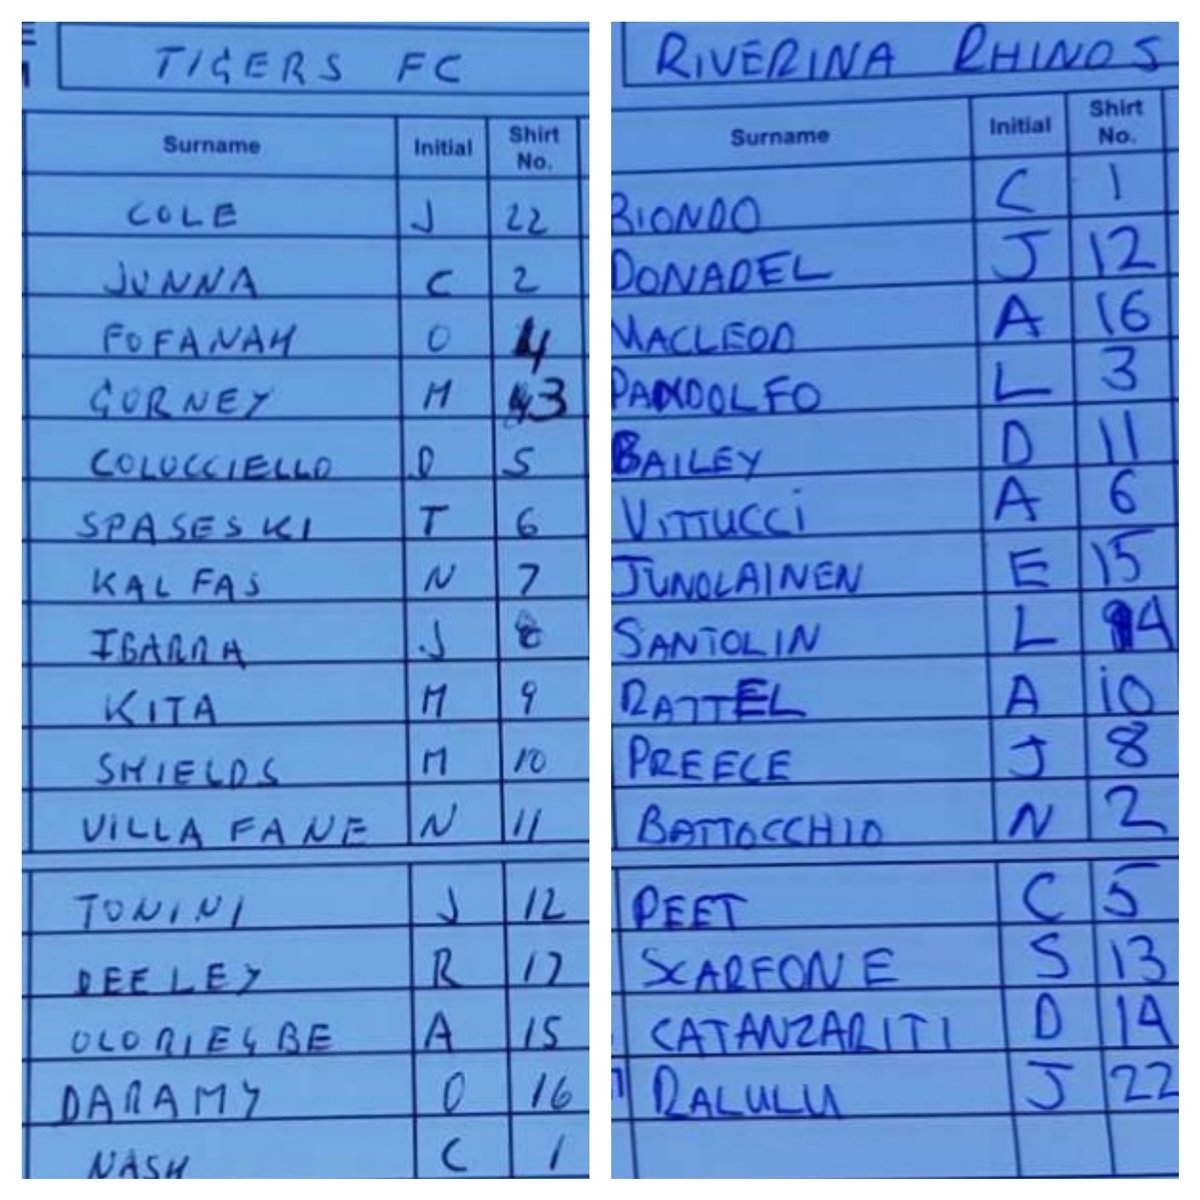 TIGERS FC
Surname Initial Shirt No.
COLE J 22
JUNNA C 2
FOFANAH O 4
GURNEY M 3
COLUCCIELLO D 5
SPASESKI T 6
KALFAS N 7
IBARRA J 8
KITA M 9
SHIELDS M 10
VILLAFANE N 11
TONINI J 12
DEELEY R 17
OLORIEGBE A 15
DARAMY O 16
NASH C 1
RIVERINA RHINOS
Surname Initial Shirt No.
BIONDO C 1
DONADEL J 12
MACLEOD A 16
PANDOLFO L 3
BAILEY D 11
VITTUCCI A 6
JUNOLAINEN E 15
SANTOLIN L
RATTEL A 10
PREECE J 8
BATTOCCHIO N 2
PEET C 5
SCARFONE S 13
CATANZARITI D 14
RALULU J 22